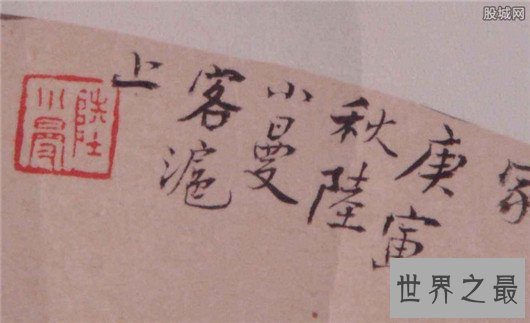 庚寅
秋陸
小曼
客滬
上
小曼
股城网
世界之最